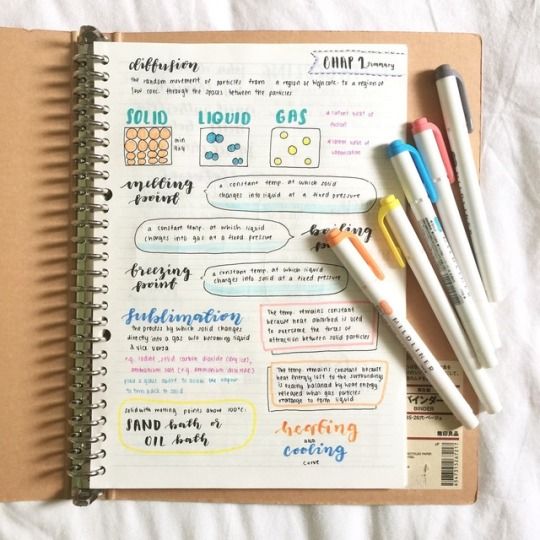 diffusion
CHAP 1 summary
the random movement of particles from a region of high conc. to a region of
low conc. through the spaces between the particles
SOLID LIQUID GAS
latent heat of
fusion
latent heat of
vaporisation
melting
point
a constant temp. at which solid
changes into liquid at a fixed pressure
a constant temp. at which liquid
changes into gas at a fixed pressure
boiling
freezing
point
a constant temp. at which liquid
changes into solid at a fixed pressure
sublimation
the process by which solid changes
directly into a gas w/o becoming liquid
& vice versa
e.g. iodine, solid carbon dioxide (dry ice),
ammonium salt (e.g. ammonium chloride)
to turn back to solid
the temp. remains constant
because heat absorbed is used
to overcome the forces of
attraction between solid particles
the temp. remains constant because
heat energy lost to the surroundings
is exactly balanced by heat energy
released when gas particles
rearrange to form liquid
solids with melting points above 100°C:
SAND bath or
OIL bath
heating
and
cooling
curve
MILDLINER
バインダー
BINDER
無印良品